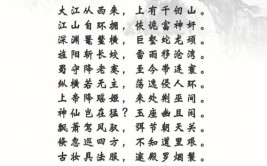 大江从西来，上有千仞山。
江山自环拥，恢诡富神奸。
深渊鼋鳖横，巨壑蛇龙顽。
旌阳斩长蛟，雷雨移沧湾。
蜀守降老蹇，至今带连锾。
纵横若无主，荡逸侵人寰。
上帝降瑶姬，来处荆巫间。
神仙岂在猛，玉座幽且闲。
飘萧驾风驭，弭节朝天关。
倏忽巡四方，不知道里艰。
古妆具法服，邃殿罗烟鬟。